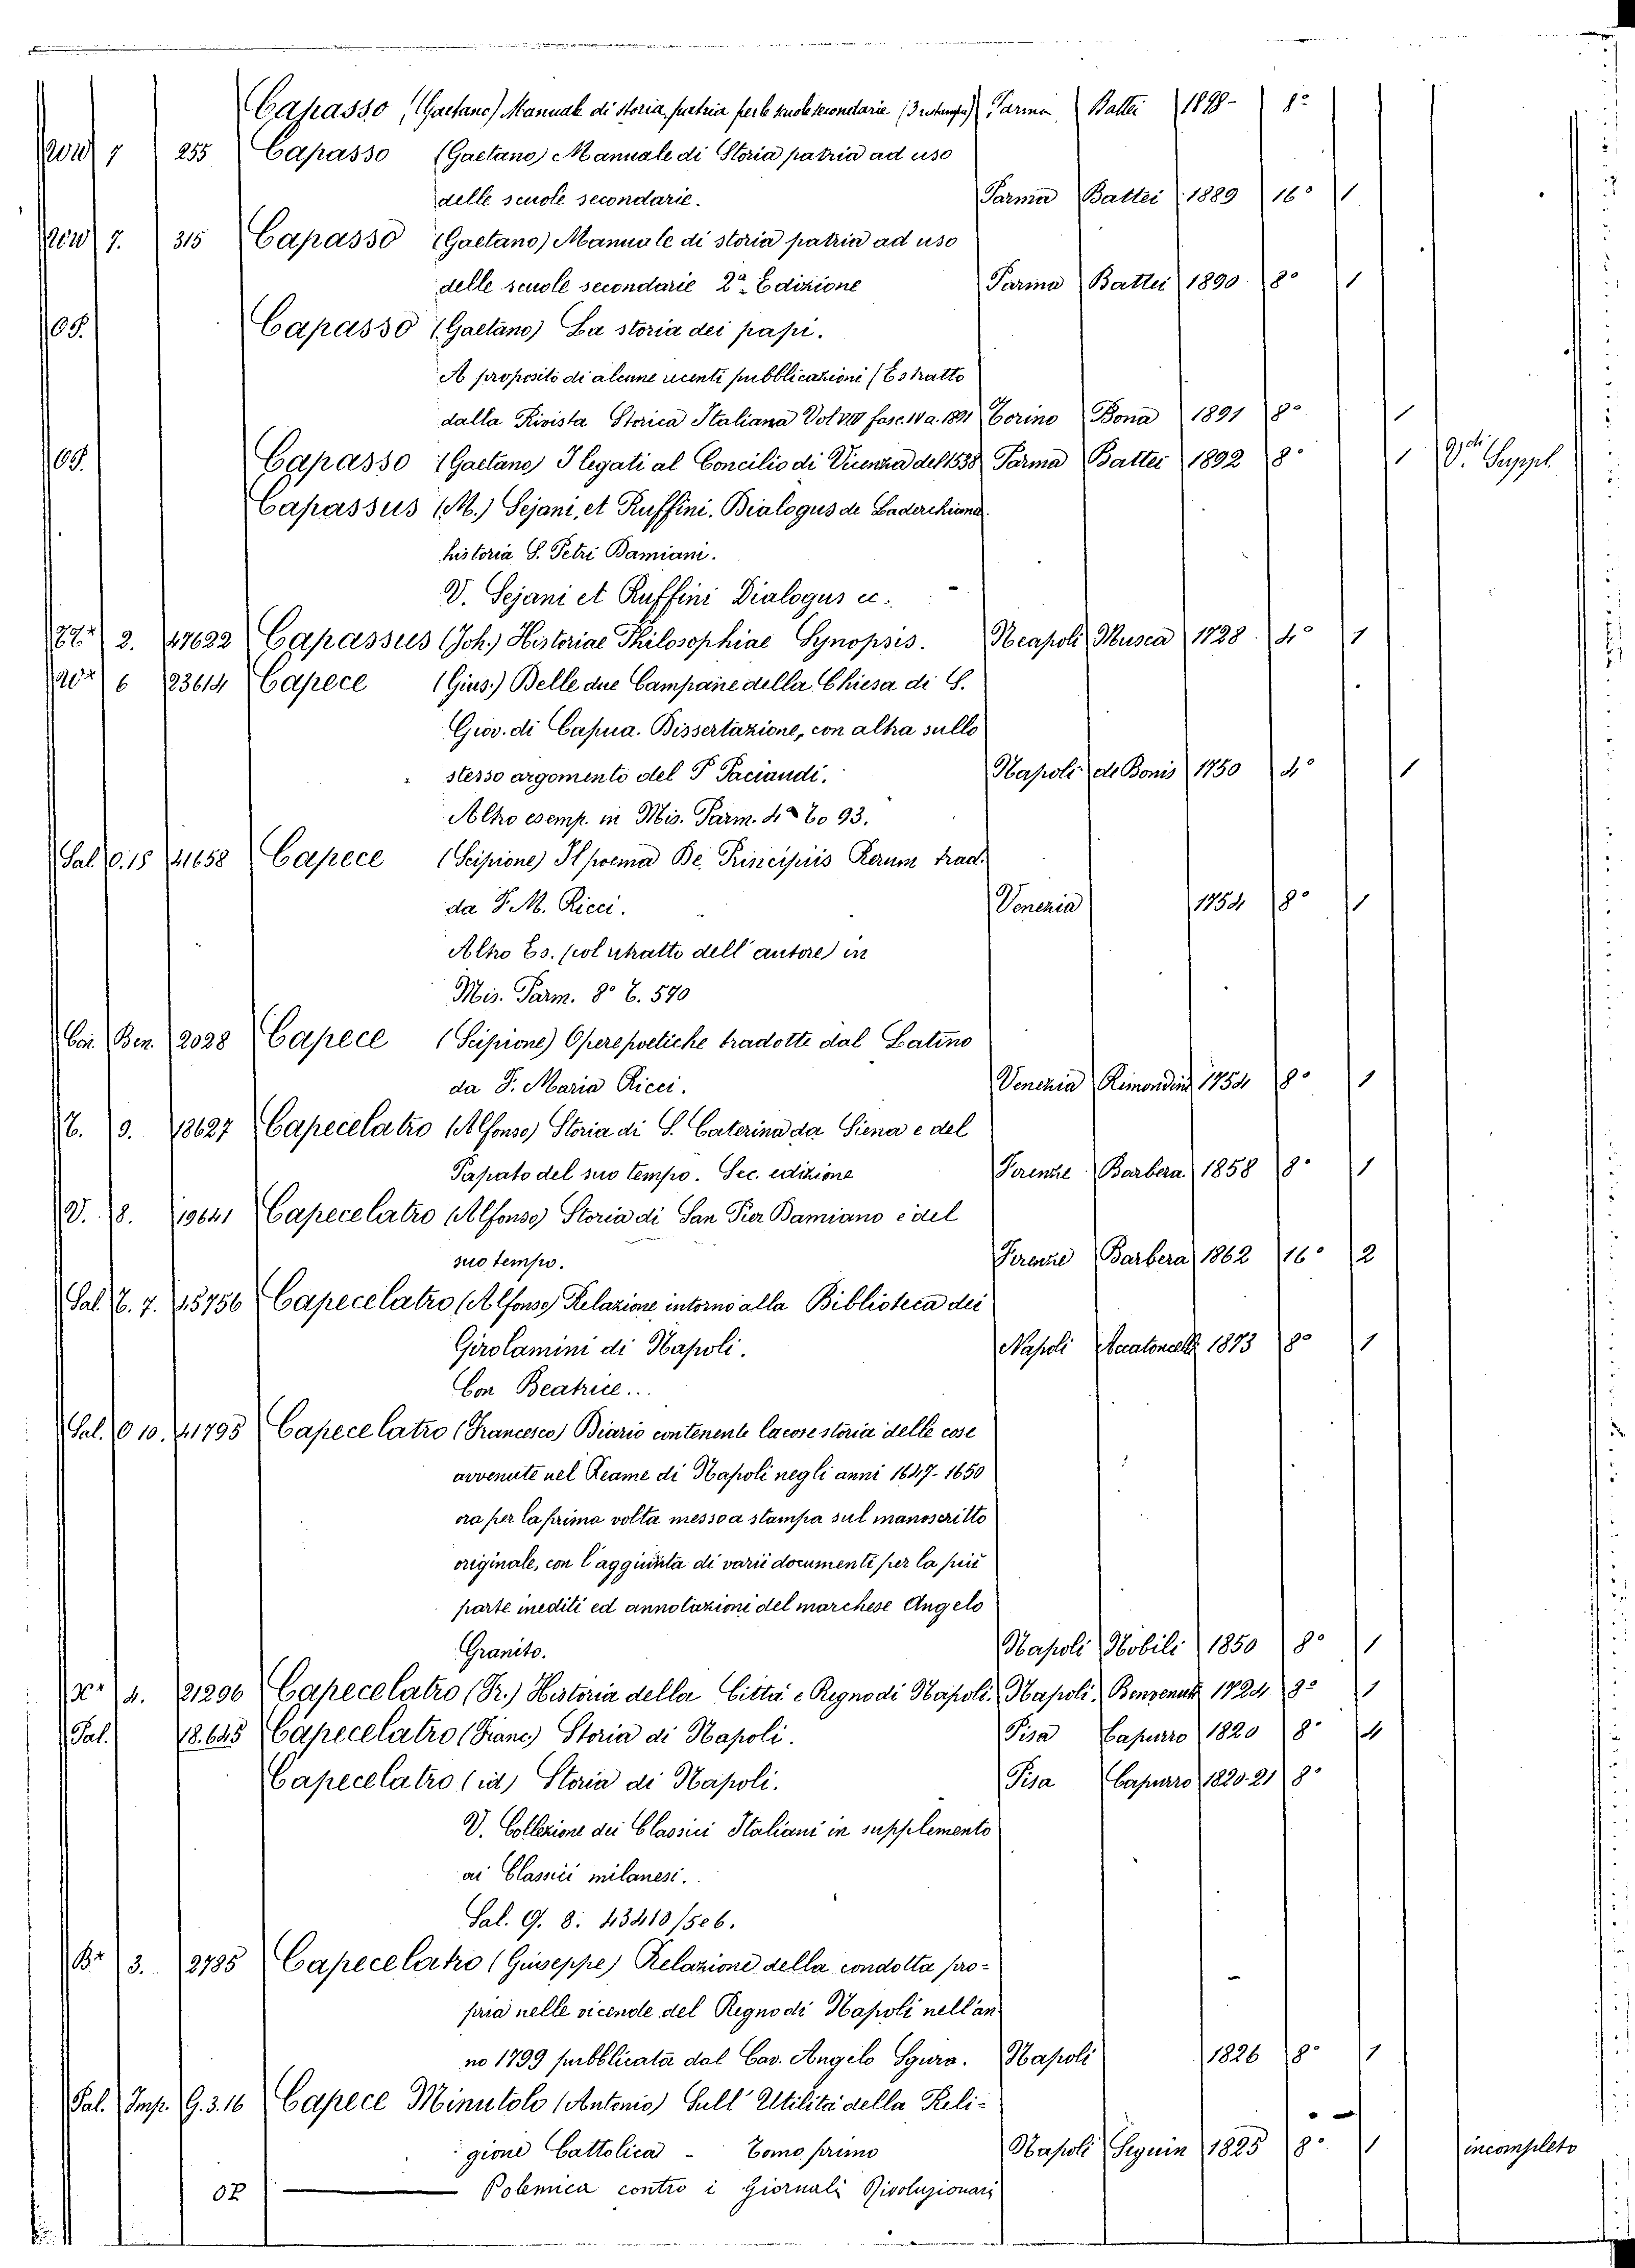 Capasso (Gaetano) Manuale di storia patria per le scuole secondarie (3 ristampa) Parma Battei 1898- 8º
7 255 Capasso (Gaetano) Manuale di Storia patria ad uso
delle scuole secondarie. Parma Battei 1889 16º 1
7. 315 Capasso (Gaetano) Manuale di storia patria ad uso
delle scuole secondarie 2ª Edizione Parma Battei 1890 8º 1
Capasso (Gaetano) La storia dei papi.
A proposito di alcune recenti pubblicazioni (Estratto
dalla Rivista Storica Italiana Vol VIII fasc. IV a. 1891 Torino Bona 1891 8º 1
Capasso (Gaetano) I legati al Concilio di Vicenza del 1538 Parma Battei 1892 8º 1 Vedi Suppl.
Capassus (M.) Sejani, et Ruffini. Dialogus de Laderchiana
historia S. Petri Damiani.
V. Sejani et Ruffini Dialogus ec.
2. 47622 Capassus (Joh.) Historiae Philosophiae Synopsis. Neapoli Musca 1728 4º 1
6 23614 Capece (Gius.) Delle due Campane della Chiesa di S.
Giov. di Capua. Dissertazione, con altra sullo
stesso argomento del P. Paciaudi. Napoli de Bonis 1750 4º 1
Altro esemp. in Mis. Parm. 4º To 93.
Sal. O. 15 41658 Capece (Scipione) Il poema De Principiis Rerum trad.
da F. M. Ricci. Venezia 1754 8º 1
Altro Es. (col ritratto dell'autore) in
Mis. Parm. 8º T. 570
Cor. Ben. 2028 Capece (Scipione) Opere poetiche tradotte dal Latino
da F. Maria Ricci. Venezia Remondini 1754 8º 1
T. 9. 18627 Capecelatro (Alfonso) Storia di S. Caterina da Siena e del
Papato del suo tempo. Sec. edizione Firenze Barbera 1858 8º 1
V. 8. 19641 Capecelatro (Alfonso) Storia di San Pier Damiano e del
suo tempo. Firenze Barbera 1862 16º 2
Sal. T. 7. 15756 Capecelatro (Alfonso) Relazione intorno alla Biblioteca dei
Girolamini di Napoli. Napoli Accatoncelli 1873 8º 1
Con Beatrice...
Sal. O 10. 41795 Capecelatro (Francesco) Diario contenente la cose storia delle cose
avvenute nel Reame di Napoli negli anni 1647-1650
ora per la prima volta messo a stampa sul manoscritto
originale, con l'aggiunta di varii documenti per la più
parte inediti ed annotazioni del marchese Angelo
Granito. Napoli Nobili 1850 8º 1
4. 21296 Capecelatro (Fr.) Historia della Città e Regno di Napoli. Napoli. Benvenuti 1724 8º 1
Pal. 18.645 Capecelatro (Franc.) Storia di Napoli. Pisa Capurro 1820 8º 4
Capecelatro (id) Storia di Napoli. Pisa Capurro 1820-21 8º
V. Collezione dei Classici Italiani in supplemento
ai Classici milanesi.
Sal. G. 8. 43410/506.
3. 2785 Capecelatro (Giuseppe) Relazione della condotta pro-
pria nelle vicende del Regno di Napoli nell'an
no 1799 pubblicata dal Cav. Angelo Sgura. Napoli 1826 8º 1
Pal. Imp. G. 3. 16 Capece Minutolo (Antonio) Sull'Utilità della Reli-
gione Cattolica - Tomo primo Napoli Seguin 1825 8º 1 incompleto
OP Polemica contro i Giornali Rivoluzionari